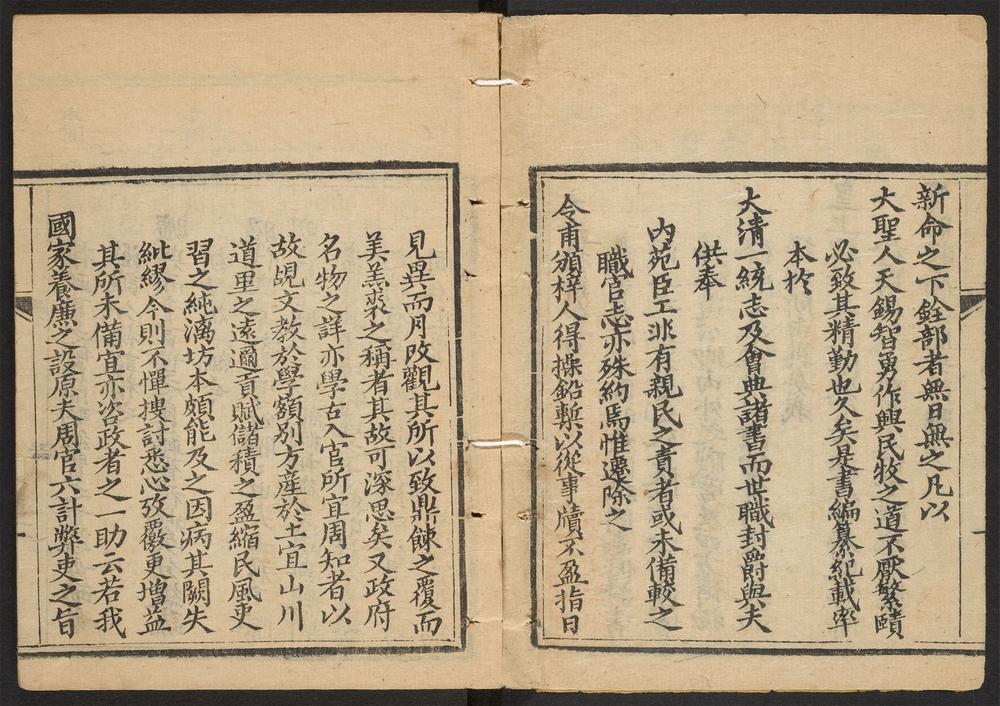 新命之下銓部者無日無之凡以
大聖人天錫智勇作興民牧之道不厭繁賾
必致其精勤也久矣是書編纂紀載率
本於
大清一統志及會典諸書而世職封爵與夫
供奉
內苑臣工非有親民之責者或未備較之
職官志亦殊約焉惟遷除之
令甫頒梓人得操鉛槧以從事牘不盈指日
見異而月改觀其所以致鼎餗之覆而
美羔裘之稱者其故可深思矣又政府
名物之詳亦學古入官所宜周知者以
故覘文教於學額別方産於土宜山川
道里之遠邇貢賦儲積之盈縮民風吏
習之純漓坊本頗能及之因病其闕失
紕繆今則不憚捜討悉心攷覈更增益
其所未備宜亦咨政者之一助云若我
國家養廉之設原夫周官六計弊吏之旨